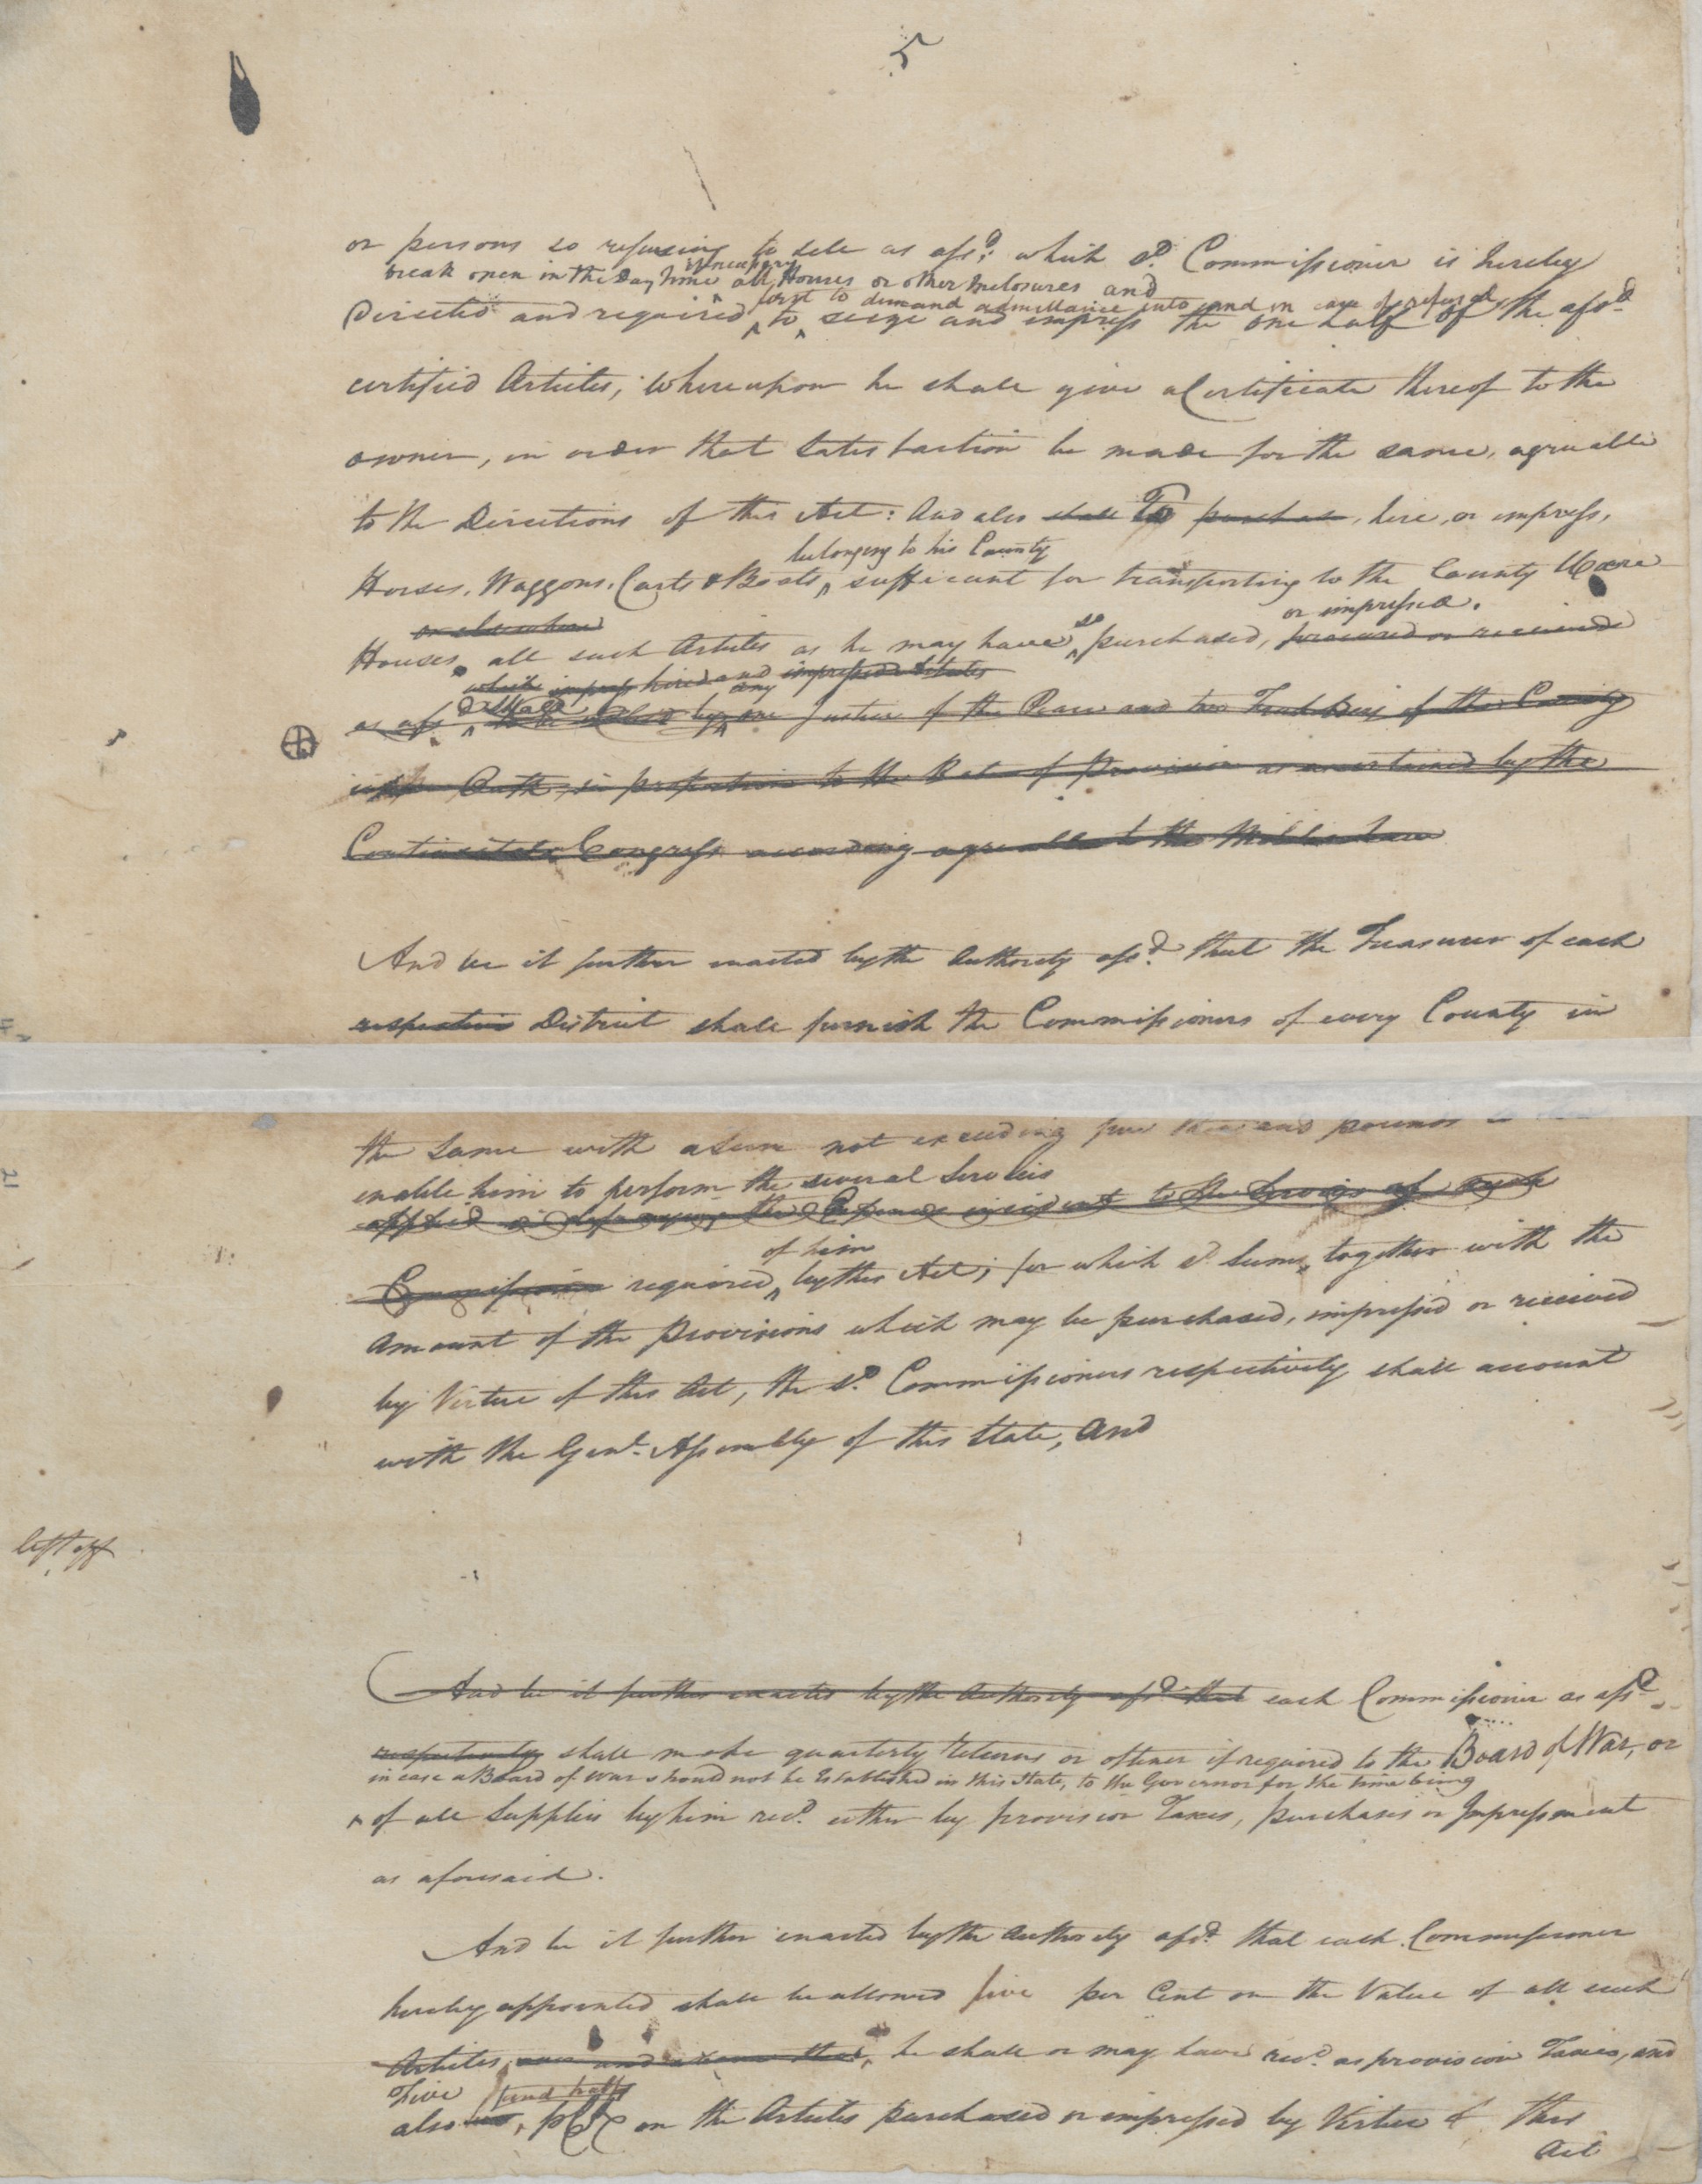 5
or persons so refusing to sell as afsd. which sd. Commissioner is hereby
if necessary
break open in the Day time all Houses or other Inclosures and
first to demand admittance into and in case of refusal
Directed and required to seize and impress the one half of the afsd.
certified Articles; Whereupon he shall give a Certificate thereof to the
owner, in order that Satisfaction be made for the same, agreeable
to the Directions of this Act: And also shall To purchase, hire, or impress,
belonging to his County
Horses, Waggons, Carts & Boats, sufficient for transporting to the County Ware
or elsewhere so or impressed.
Houses all such Articles as he may have purchased, procured or received
which impress hired and impressed Articles
as afsd shall any
be by one Justice of the Peace and two Freeholders of the County
Oath, in proportion to the Rate of Provision as ascertained by the
Continental Congress according agreeable to the Militia Law
And be it further enacted by the Authority afsd. that the Treasurer of each
respective District shall furnish the Commissioners of every County in
the same with a Sum not exceeding five thousand pounds
enable him to perform the several Services
applied in defraying the Expence incident to the Service of such
of him
Commission required by this Act; for which sd. Sums, together with the
Amount of the Provisions which may be purchased, impressed or received
by Virtue of this Act, the sd. Commissioners respectively shall account
with the Genl. Assembly of this State, and
left off
And be it further enacted by the Authority afsd that each Commissioner as afsd
respectively shall make quarterly Returns or oftener if required to the Board of War, or
in case a Board of War should not be Established in this State, to the Governor for the time being
of all Supplies by him recd. either by provision Taxes, purchases or Impressment
as aforesaid.
And be it further enacted by the Authority afsd. that each Commissioner
hereby appointed shall be allowed five per Cent on the Value of all such
Articles, over and above that, he shall or may have recd. as provision Taxes, and
Five and half
also two, pCt on the Articles purchased or impressed by Virtue of this
Act